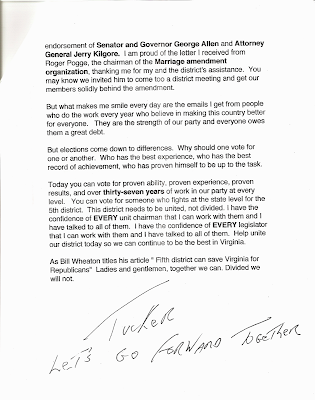 endorsement of Senator and Governor George Allen and Attorney
General Jerry Kilgore.  I am proud of the letter I received from
Roger Pogge, the chairman of the Marriage amendment
organization, thanking me for my and the district's assistance.  You
may know we invited him to come too a district meeting and get our
members solidly behind the amendment.

But what makes me smile every day are the emails I get from people
who do the work every year who believe in making this country better
for everyone.  They are the strength of our party and everyone owes
them a great debt.

But elections come down to differences.  Why should one vote for
one or another.  Who has the best experience, who has the best
record of achievement, who has proven himself to be up to the task.

Today you can vote for proven ability, proven experience, proven
results, and over thirty-seven years of work in our party at every
level.  You can vote for someone who fights at the state level for the
5th district.  This district needs to be united, not divided. I have the
confidence of EVERY unit chairman that I can work with them and I
have talked to all of them.  I have the confidence of EVERY legislator
that I can work with them and I have talked to all of them.  Help unite
our district today so we can continue to be the best in Virginia.

As Bill Wheaton titles his article " Fifth district can save Virginia for
Republicans"  Ladies and gentlemen, together we can. Divided we
will not.

Tucker
LET'S GO FORWARD TOGETHER